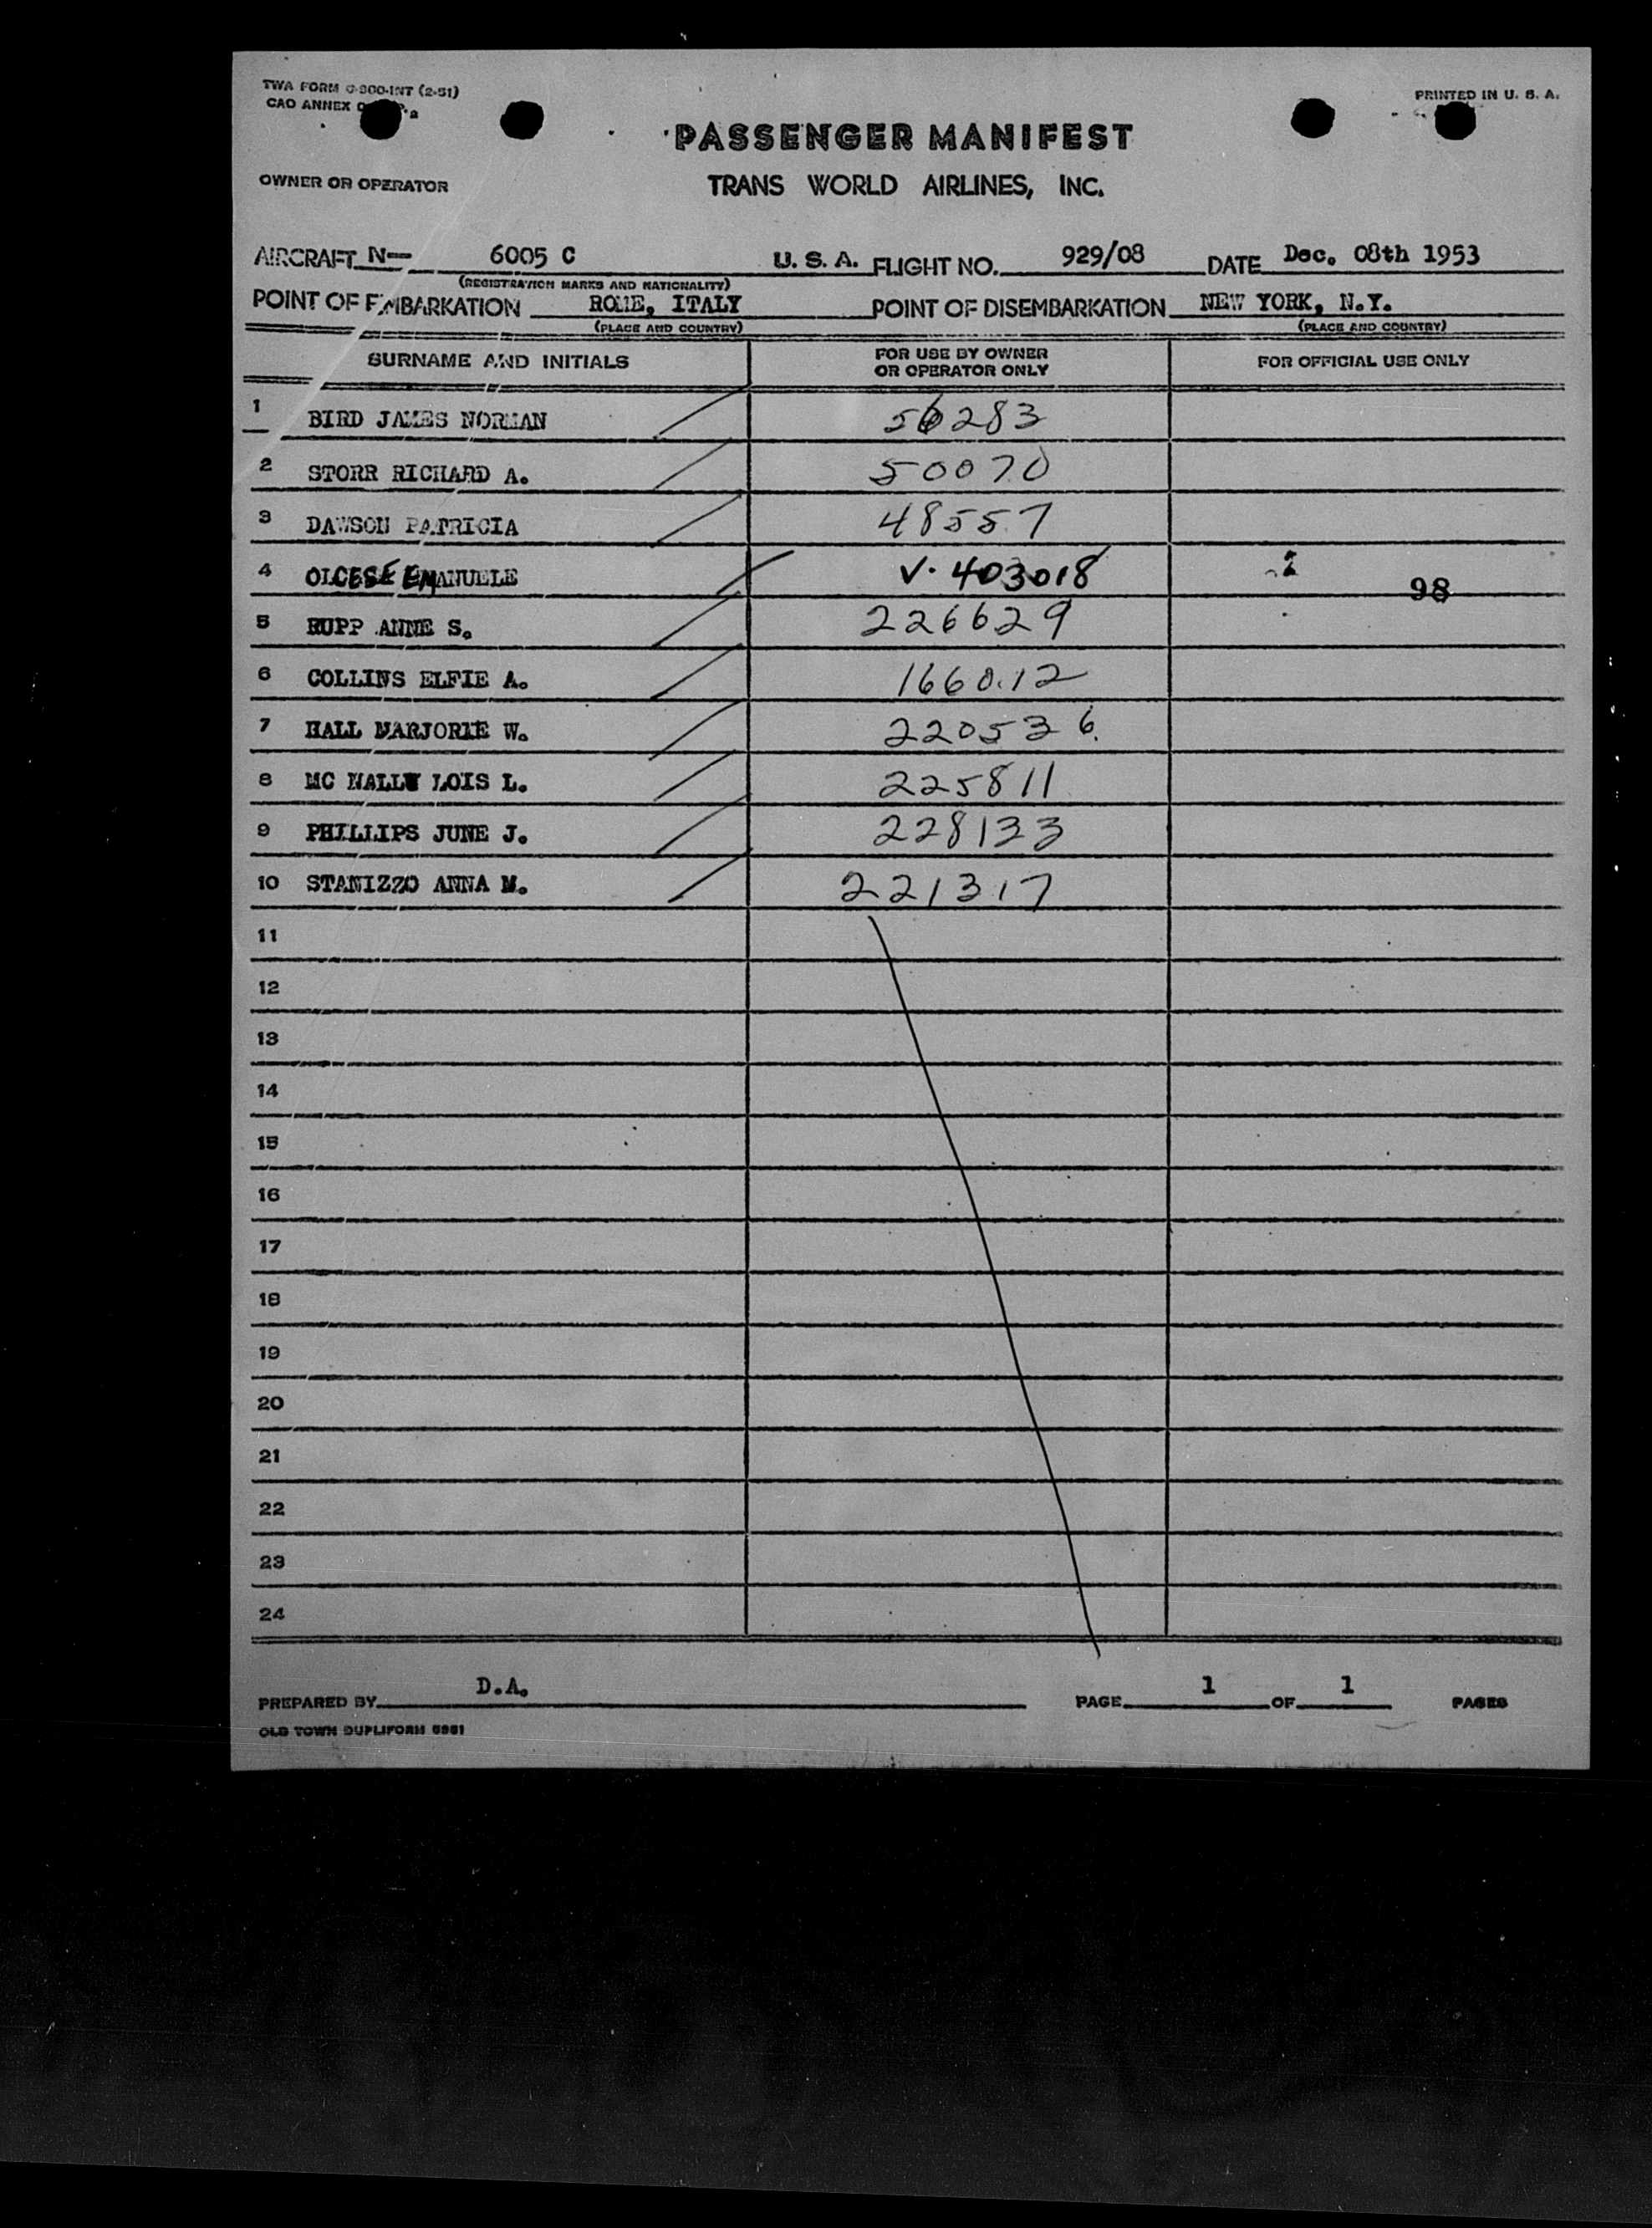 TWA FORM C-900-INT (2-51)
PRINTED IN U. S. A.
CAO ANNEX
PASSENGER MANIFEST
OWNER OR OPERATOR
TRANS WORLD AIRLINES, INC.
AIRCRAFT N- 6005 C U. S. A. FLIGHT NO. 929/08 DATE Dec. 08th 1953
(REGISTRATION MARKS AND NATIONALITY)
POINT OF EMBARKATION ROME, ITALY POINT OF DISEMBARKATION NEW YORK, N.Y.
(PLACE AND COUNTRY) (PLACE AND COUNTRY)
SURNAME AND INITIALS FOR USE BY OWNER OR OPERATOR ONLY FOR OFFICIAL USE ONLY
1 BIRD JAMES NORMAN 56283
2 STORR RICHARD A. 50070
3 DAWSON PATRICIA 48557
4 OLCESE EMANUELE V. 403018 98
5 RUPP ANNE S. 226629
6 COLLINS ELFIE A. 166012
7 HALL MARJORIE W. 220536
8 MC NALLY LOIS L. 225811
9 PHILLIPS JUNE J. 228133
10 STANIZZO ANNA M. 221317
11
12
13
14
15
16
17
18
19
20
21
22
23
24
PREPARED BY D.A. PAGE 1 OF 1 PAGES
OLD TOWN DUPLIFORM